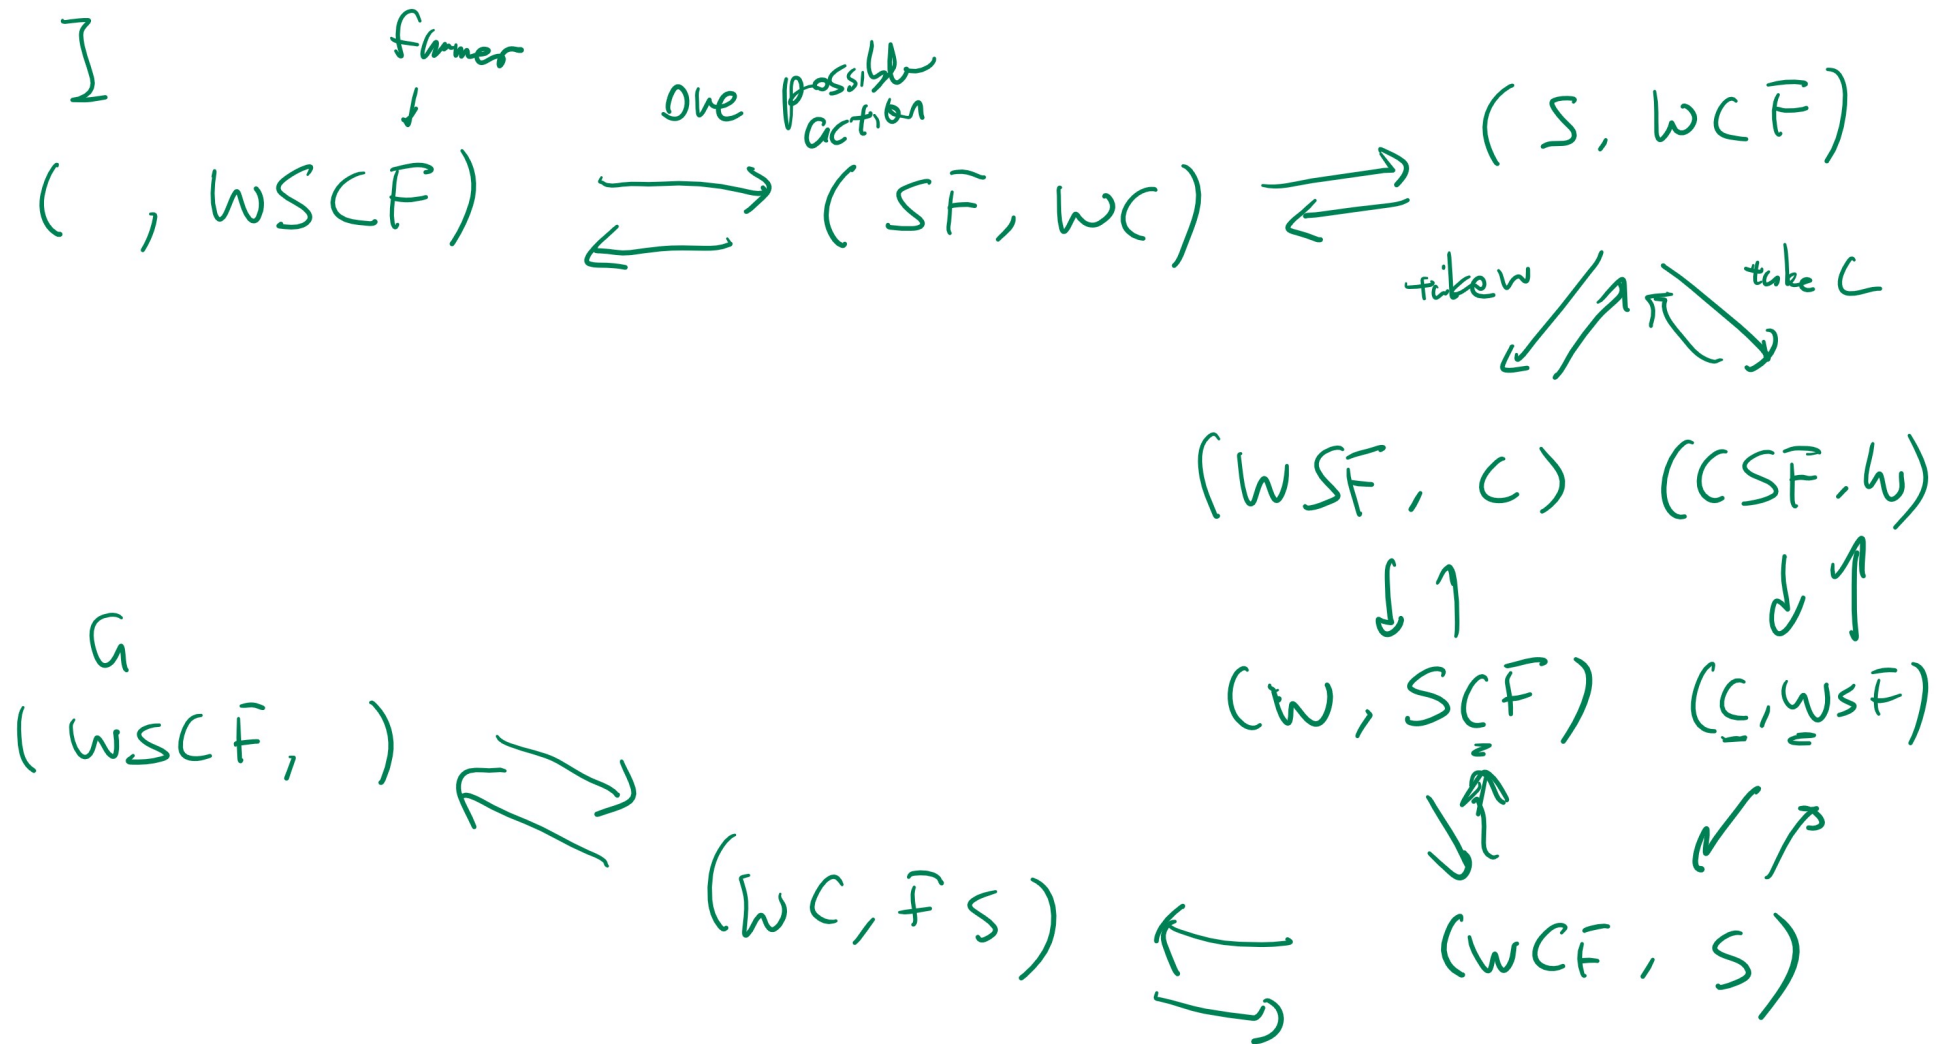 I
farmer
One possible
action
( , WSCF)
(SF, WC)
(S, WCF)
take W
take C
(WSF, C)
(CSF, W)
(W, SCF)
(C, WSF)
G
(WSCF, )
(WC, FS)
(WCF, S)